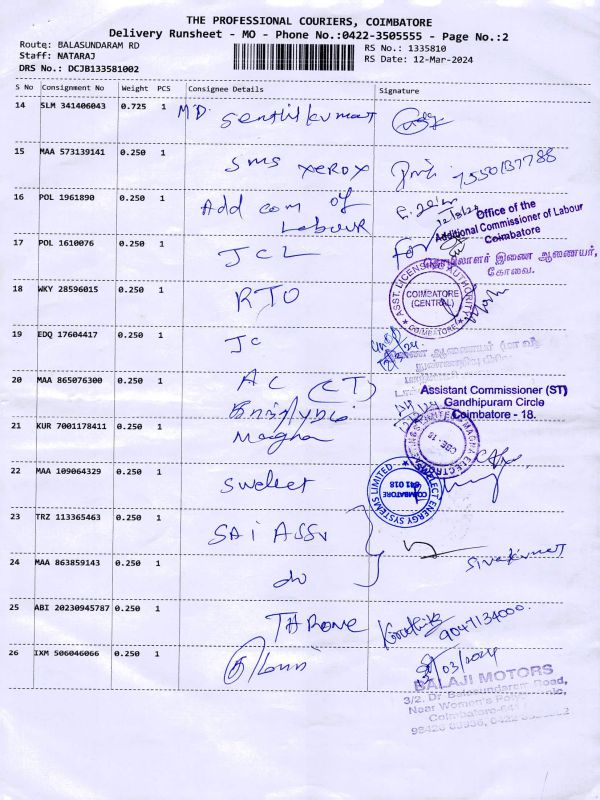 THE PROFESSIONAL COURIERS, COIMBATORE
Delivery Runsheet - MO - Phone No.:0422-3505555 - Page No.:2
Route: BALASUNDARAM RD
Staff: NATARAJ
DRS No.: DCJB133581002
RS No.: 1335810
RS Date: 12-Mar-2024
S No Consignment No Weight PCS Consignee Details Signature
14 SLM 341406043 0.725 1 MD. Senthilkumar
15 MAA 573139141 0.250 1 SMS XEROX 7550137788
16 POL 1961890 0.250 1 Add com of
Labour
Office of the
Additional Commissioner of Labour
Coimbatore
17 POL 1610076 0.250 1 JCL For
தொழிலாளர் இணை ஆணையர்,
கோவை.
18 WKY 28596015 0.250 1 RTO
ASST. LICENSING AUTHORITY
COIMBATORE
(CENTRAL)
COIMBATORE
19 EDQ 17604417 0.250 1 JC
20 MAA 865076300 0.250 1 AC (CT)
Assistant Commissioner (ST)
Gandhipuram Circle
Coimbatore - 18.
21 KUR 7001178411 0.250 1
Magna
22 MAA 109064329 0.250 1 Swelect
SWELECT ENERGY SYSTEMS LIMITED
COIMBATORE
641 018
23 TRZ 113365463 0.250 1 SAI ASSU
24 MAA 863859143 0.250 1 do Sivakumar
25 ABI 20230945787 0.250 1 THRONE Karthik
9047134000
26 IXM 506046066 0.250 1
BALAJI MOTORS
3/2, Dr. Balasundaram Road,
Near Women's
Coimbatore-641